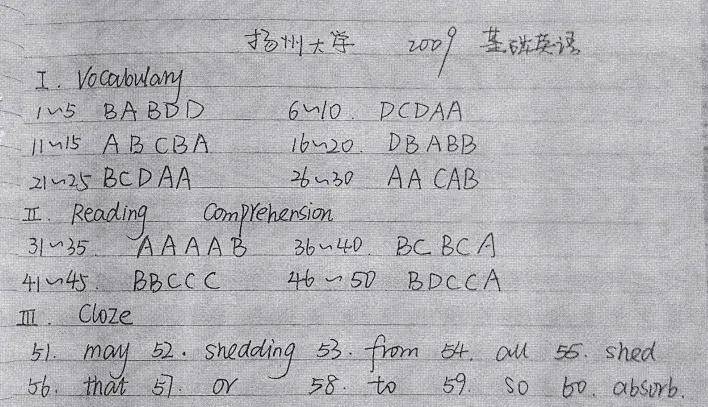 扬州大学 2009 基础英语
I. Vocabulary
1~5 BABDD 6~10. DCDAA
11~15 ABCBA 16~20. DBABB
21~25 BCDAA 26~30 AACAB
II. Reading Comprehension
31~35. AAAAB 36~40. BCBCA
41~45. BBCCC 46~50 BDCCA
III. Cloze
51. may 52. shedding 53. from 54. all 55. shed
56. that 57. or 58. to 59. so 60. absorb.